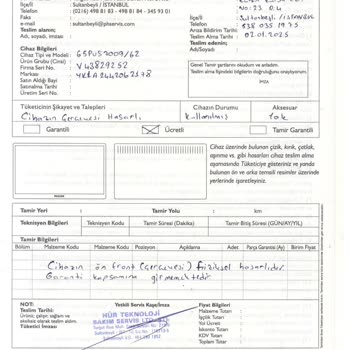 İlçe/İl : Sultanbeyli / İSTANBUL
Telefon : (0216) 498 81 83 - 498 81 84 - 345 93 01
Faks :
e-mail : sultanbeyli@phservis.com
Teslim alanın;
Adı, soyadı, imzası :
No:23 D.4
İlçe/İl Sultanbeyli / İSTANBUL
Telefon
e-mail
Arıza Bildirim Tarihi
Teslim Alma Tarihi : 02.01.2025
Teslim edenin;
Adı/Soyadı
Cihaz Bilgileri
Cihaz Tipi ve Modeli : 65PUS7009/62
Ürün Grubu (Cinsi) :
Firma Seri No. : V43829252
Markası
Satın Aldığı Bayi
Satınalma Tarihi
Üretim Seri No.
Genel Tamir şartlarını okudum ve anladım.
Teslim alma fişindeki bilgilerin doğruluğunu onaylıyorum.
İMZA
Tüketicinin Şikayet ve Talepleri Cihazın Durumu Aksesuar
Cihazın Çerçevesi Hasarlı kullanılmış Yok
Garantili Ücretli Tamir Garantili
Cihaz üzerinde bulunan çizik, kırık, çatlak,
aşınma vs. gibi hasarları cihaz teslim alma
aşamasında Tüketiciye gösteriniz ve yanda
bulunan ön ve arka temsili resimler üzerinde
yerlerinde işaretleyiniz.
Tamir Yeri : Tamir Yolu : km
Teknisyen Bilgileri Teknisyen Kodu Tamir Süresi (Dakika) Tamir Bitiş Süresi (GÜN/AY/YIL)
Tamir Bilgileri
Bölüm Malzeme Kodu Malzeme Kodu Pozisyon Açıklama Adet Parça Garantisi (Ay) Birim Fiyat
Cihazın ön front (Çerçevesi) fiziksel hasarlıdır
Garanti kapsamına girmemektedir
NOT:
Teslim Tarihi:
Ürünü; çalışır, sağlam ve
eksiksiz olarak teslim aldım.
Tüketici İmzası
Yetkili Servis Kaşe/İmza
HÜR TEKNOLOJİ
BAKIM SERVİS LTD. ŞTİ.
Fiyat Bilgileri
Malzeme Tutarı :
İşçilik Tutarı :
Yol Ücreti :
İskonto Tutarı :
KDV Tutarı :
Toplam Tutar :